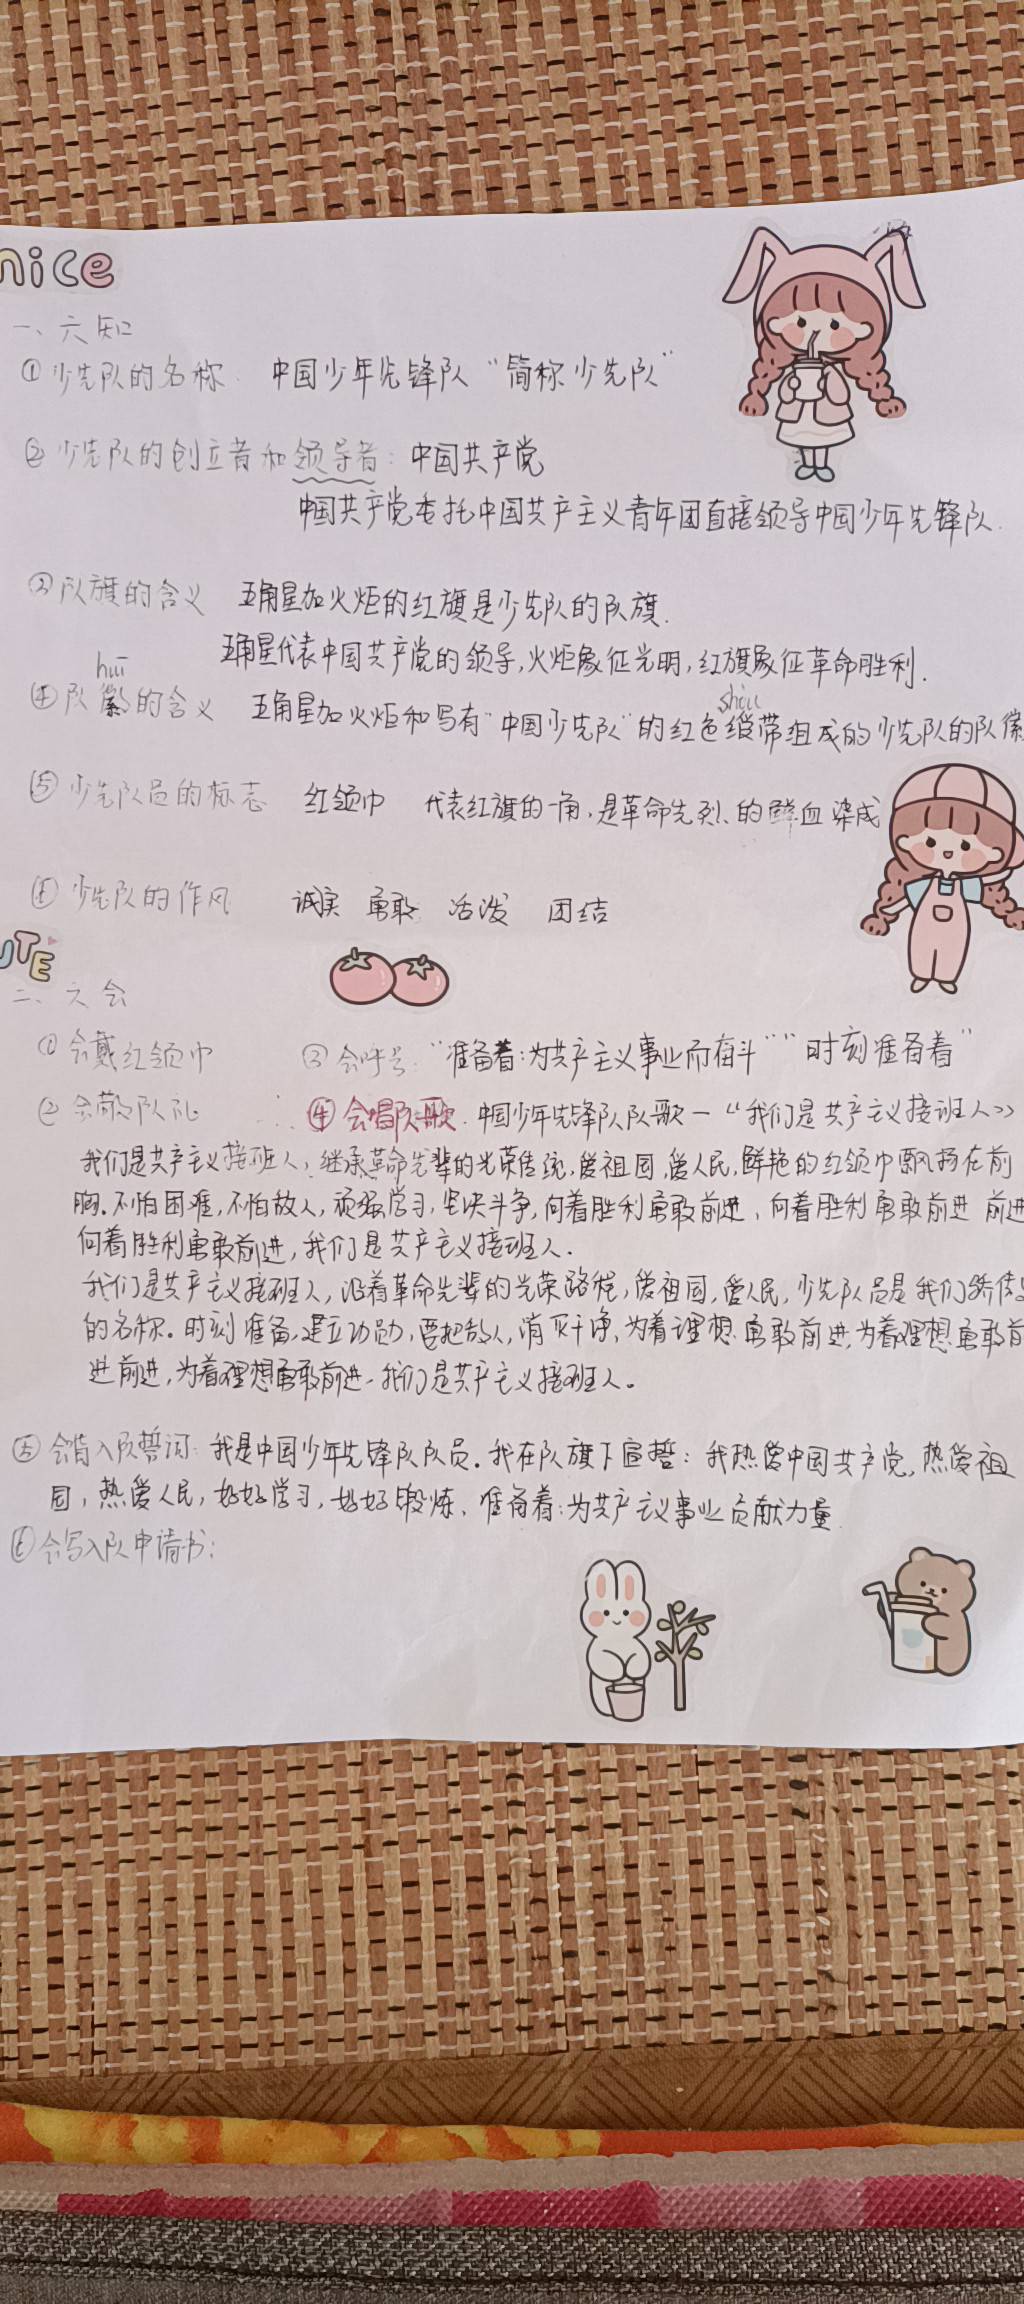 nice
一、六知
①少先队的名称 中国少年先锋队“简称少先队”
②少先队的创立者和领导者：中国共产党
中国共产党委托中国共产主义青年团直接领导中国少年先锋队.
③队旗的含义 五角星加火炬的红旗是少先队的队旗.
五角星代表中国共产党的领导,火炬象征光明,红旗象征革命胜利.
huī
④队徽的含义 五角星加火炬和写有“中国少先队”的红色绶带组成的少先队的队徽
shòu
⑤少先队员的标志 红领巾 代表红旗的一角,是革命先烈的鲜血染成
⑥少先队的作风 诚实 勇敢 活泼 团结
UTE
二、六会
①会戴红领巾 ③会呼号:“准备着:为共产主义事业而奋斗”“时刻准备着”
②会敬队礼 ④会唱队歌.中国少年先锋队队歌—“我们是共产主义接班人>>
我们是共产主义接班人,继承革命先辈的光荣传统,爱祖国,爱人民,鲜艳的红领巾飘扬在前
胸.不怕困难,不怕敌人,顽强学习,坚决斗争,向着胜利勇敢前进,向着胜利勇敢前进 前进
向着胜利勇敢前进,我们是共产主义接班人.
我们是共产主义接班人,沿着革命先辈的光荣路程,爱祖国,爱人民,少先队员是我们骄傲
的名称。时刻准备,建立功勋,要把敌人,消灭干净,为着理想勇敢前进,为着理想勇敢前
进前进,为着理想勇敢前进.我们是共产主义接班人。
⑤会背入队誓词:我是中国少年先锋队队员.我在队旗下宣誓:我热爱中国共产党,热爱祖
国,热爱人民,好好学习,好好锻炼,准备着:为共产主义事业贡献力量.
⑥会写入队申请书: